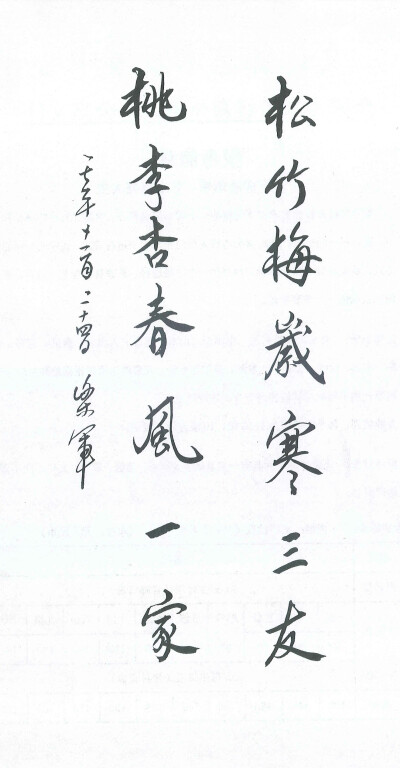 松竹梅歲寒三友
桃李杏春風一家
十一月二十四日 樂軍